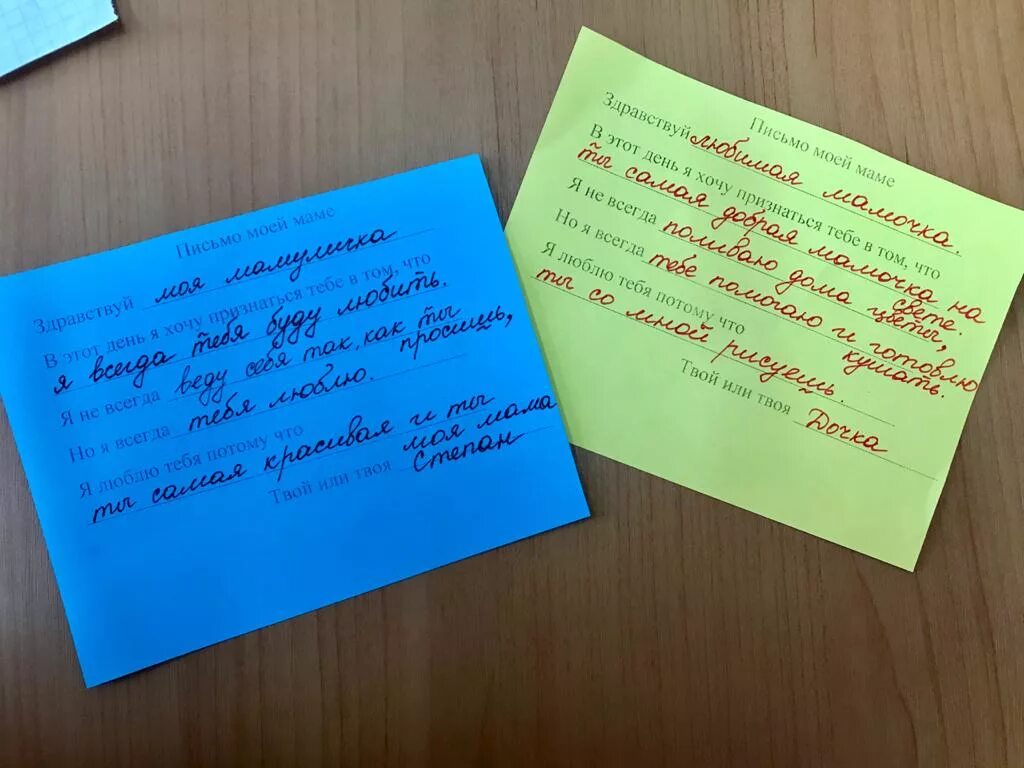 Письмо моей маме
Здравствуй моя мамуличка
В этот день я хочу признаться тебе в том, что
я всегда тебя буду любить.
Я не всегда веду себя так, как ты
просишь,
Но я всегда тебя люблю.
Я люблю тебя потому что
ты самая красивая и ты
моя мама
Твой или твоя Степан
Письмо моей маме
Здравствуй любимая мамочка.
В этот день я хочу признаться тебе в том, что
ты самая добрая мамочка на
свете.
Я не всегда поливаю дома цветы,
Но я всегда тебе помогаю и готовлю
кушать.
Я люблю тебя потому что
ты со мной рисуешь.
Твой или твоя Дочка